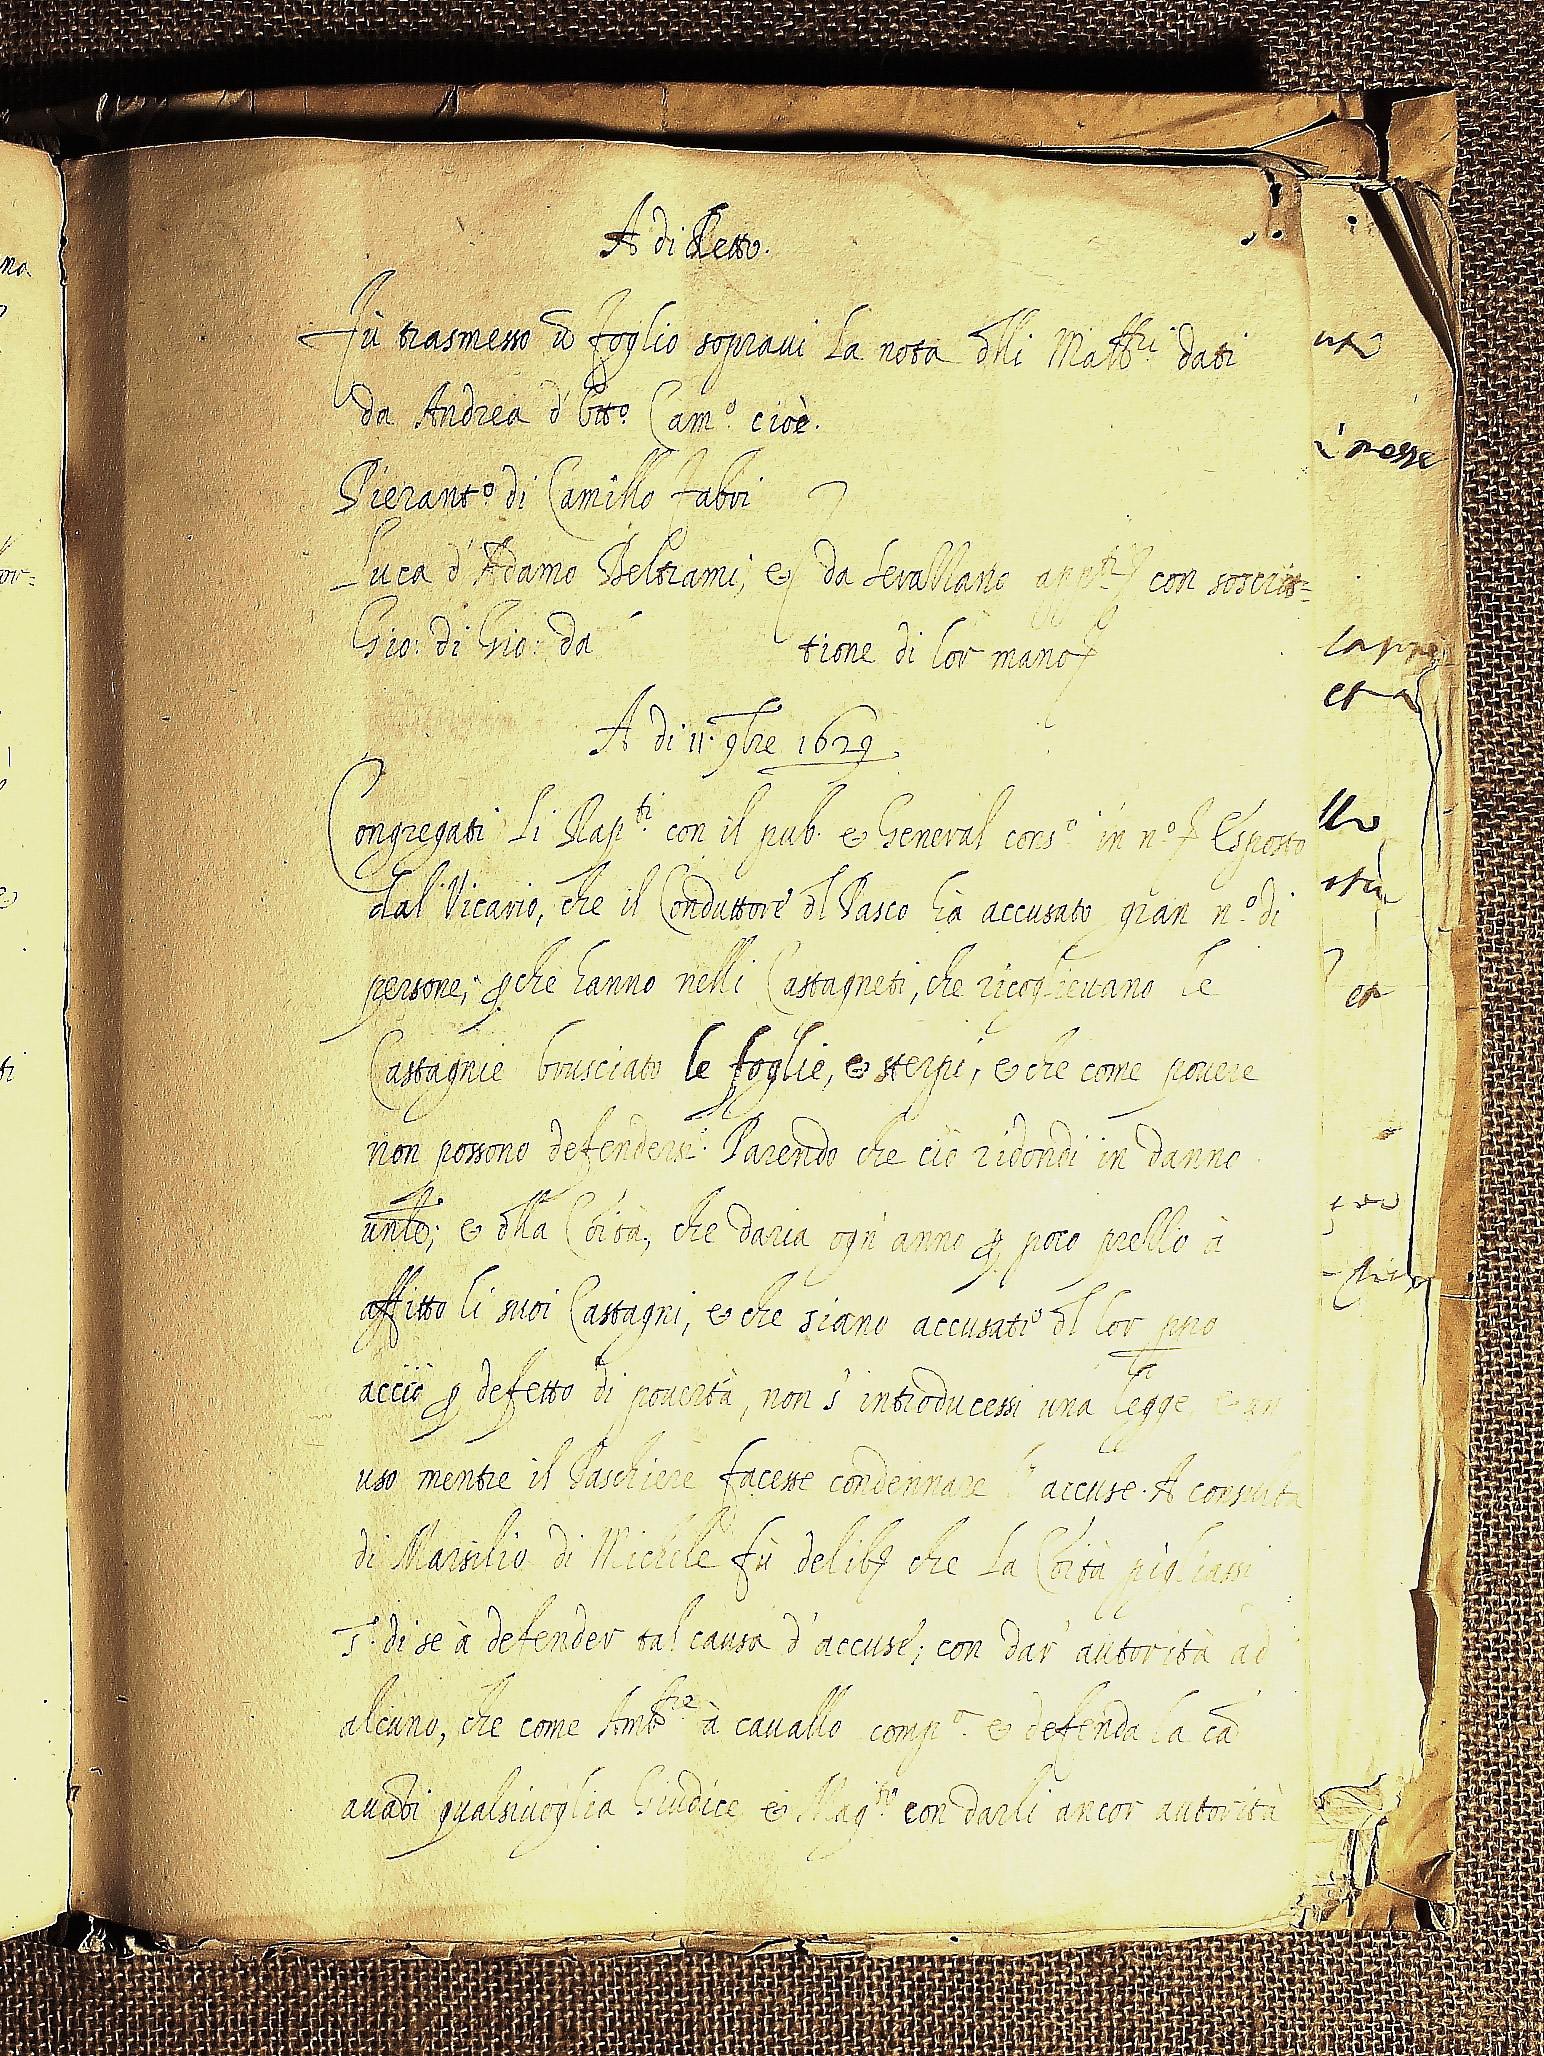 A di detto.
Fù trasmesso ũ foglio sopraui la nota dlli Mattri dati
da Andrea d' Btto. Camo. cioè.
Pieranto. di Camillo fabri
Luca d' Adamo Beltrami, & da Leuallano con soscrit=
Gio: di Gio: da tione di lor mano
A di 11. 9bre 1629.
Congregati li Rapti. con il pub. & General conso. in no. Esposto
dal Vicario, che il Conduttore dl Pasco hà accusato gran no. di
persone, ꝑche hanno nelli Castagneti, che ricoglieuano le
Castagnie brusciato le foglie, & sterpi, & che come pouere
non possono defendersi. Parendo che ciò ridondi in danno
& dlla Cōità, che daria ogn' anno ꝑ poco prello à
affitto li suoi Castagni, & che siano accusati dl lor pro
acciò ꝑ defetto di pouertà, non s' introducessi una legge, & un
uso mentre il Paschiere facesse condennare l' accuse. A consulta
di Marsilio di Michele fù delib. che la Cōità pigliassi
s. di se à defender tal causa d' accuse, con dar' autorità ad
alcuno, che come Ambre à cauallo & defenda la cā
auāti qualsiuoglia Giudice, & Magto con darli ancor autorità